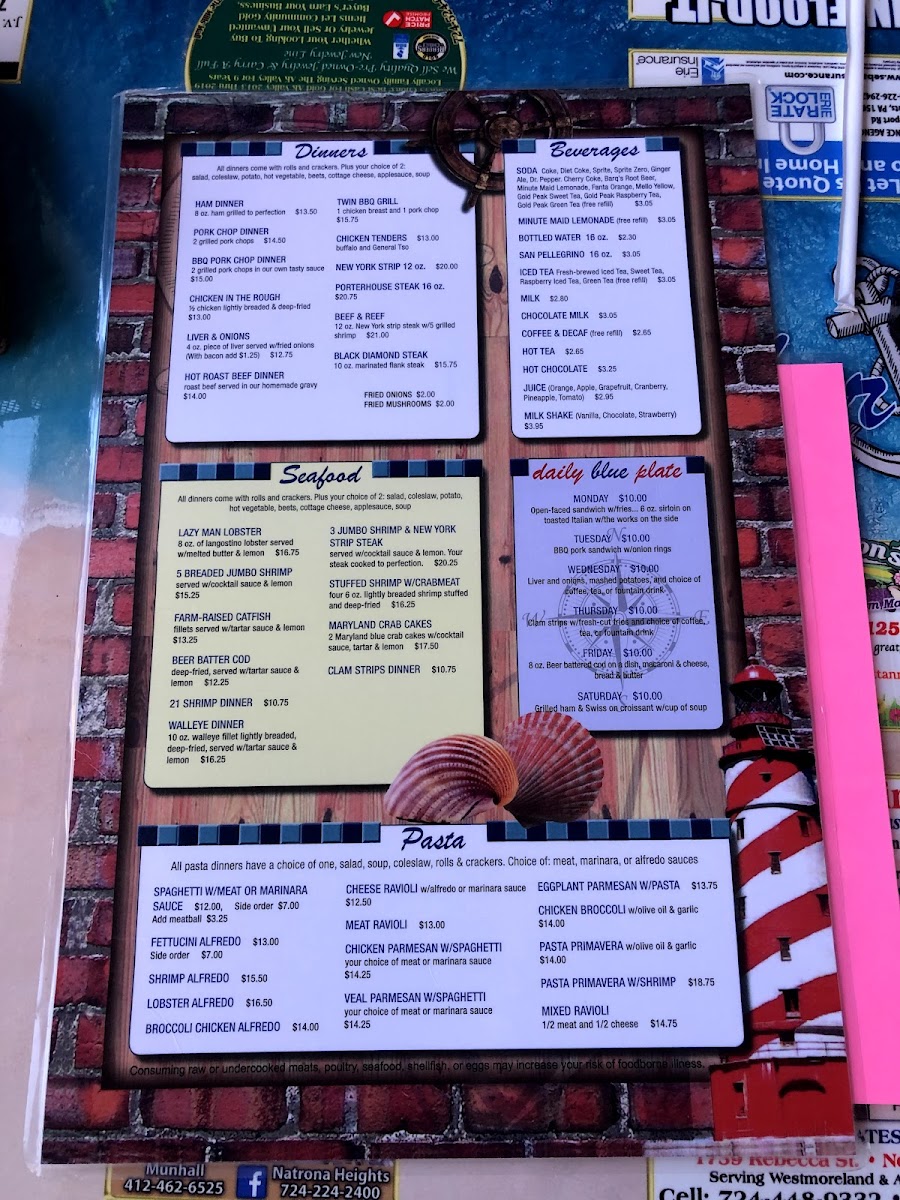 Dinners
All dinners come with rolls and crackers. Plus your choice of 2:
salad, coleslaw, potato, hot vegetable, beets, cottage cheese, applesauce, soup
HAM DINNER
8 oz. ham grilled to perfection $13.50
PORK CHOP DINNER
2 grilled pork chops $14.50
BBQ PORK CHOP DINNER
2 grilled pork chops in our own tasty sauce
$15.00
CHICKEN IN THE ROUGH
½ chicken lightly breaded & deep-fried
$13.00
LIVER & ONIONS
4 oz. piece of liver served w/fried onions
(With bacon add $1.25) $12.75
HOT ROAST BEEF DINNER
roast beef served in our homemade gravy
$14.00
TWIN BBQ GRILL
1 chicken breast and 1 pork chop
$15.75
CHICKEN TENDERS $13.00
buffalo and General Tso
NEW YORK STRIP 12 oz. $20.00
PORTERHOUSE STEAK 16 oz.
$20.75
BEEF & REEF
12 oz. New York strip steak w/5 grilled
shrimp $21.00
BLACK DIAMOND STEAK
10 oz. marinated flank steak $15.75
FRIED ONIONS $2.00
FRIED MUSHROOMS $2.00
Beverages
SODA Coke, Diet Coke, Sprite, Sprite Zero, Ginger
Ale, Dr. Pepper, Cherry Coke, Barq's Root Beer,
Minute Maid Lemonade, Fanta Orange, Mello Yellow,
Gold Peak Sweet Tea, Gold Peak Raspberry Tea,
Gold Peak Green Tea (free refill) $3.05
MINUTE MAID LEMONADE (free refill) $3.05
BOTTLED WATER 16 oz. $2.30
SAN PELLEGRINO 16 oz. $3.05
ICED TEA Fresh-brewed Iced Tea, Sweet Tea,
Raspberry Iced Tea, Green Tea (free refill) $3.05
MILK $2.80
CHOCOLATE MILK $3.05
COFFEE & DECAF (free refill) $2.65
HOT TEA $2.65
HOT CHOCOLATE $3.25
JUICE (Orange, Apple, Grapefruit, Cranberry,
Pineapple, Tomato) $2.95
MILK SHAKE (Vanilla, Chocolate, Strawberry)
$3.95
Seafood
All dinners come with rolls and crackers. Plus your choice of 2: salad, coleslaw, potato,
hot vegetable, beets, cottage cheese, applesauce, soup
LAZY MAN LOBSTER
8 oz. of langostino lobster served
w/melted butter & lemon $16.75
5 BREADED JUMBO SHRIMP
served w/cocktail sauce & lemon
$15.25
FARM-RAISED CATFISH
fillets served w/tartar sauce & lemon
$13.25
BEER BATTER COD
deep-fried, served w/tartar sauce &
lemon $12.25
21 SHRIMP DINNER $10.75
WALLEYE DINNER
10 oz. walleye fillet lightly breaded,
deep-fried, served w/tartar sauce &
lemon $16.25
3 JUMBO SHRIMP & NEW YORK
STRIP STEAK
served w/cocktail sauce & lemon. Your
steak cooked to perfection. $20.25
STUFFED SHRIMP W/CRABMEAT
four 6 oz. lightly breaded shrimp stuffed
and deep-fried $16.25
MARYLAND CRAB CAKES
2 Maryland blue crab cakes w/cocktail
sauce, tartar & lemon $17.50
CLAM STRIPS DINNER $10.75
daily blue plate
MONDAY $10.00
Open-faced sandwich w/fries... 6 oz. sirloin on
toasted Italian w/the works on the side
TUESDAY $10.00
BBQ pork sandwich w/onion rings
WEDNESDAY $10.00
Liver and onions, mashed potatoes, and choice of
coffee, tea, or fountain drink
THURSDAY $10.00
Clam strips w/fresh-cut fries and choice of coffee,
tea, or fountain drink
FRIDAY $10.00
8 oz. Beer battered cod on a dish, macaroni & cheese,
bread & butter
SATURDAY $10.00
Grilled ham & Swiss on croissant w/cup of soup
N
W
E
Pasta
All pasta dinners have a choice of one, salad, soup, coleslaw, rolls & crackers. Choice of: meat, marinara, or alfredo sauces
SPAGHETTI W/MEAT OR MARINARA
SAUCE $12.00, Side order $7.00
Add meatball $3.25
FETTUCINI ALFREDO $13.00
Side order $7.00
SHRIMP ALFREDO $15.50
LOBSTER ALFREDO $16.50
BROCCOLI CHICKEN ALFREDO $14.00
CHEESE RAVIOLI w/alfredo or marinara sauce
$12.50
MEAT RAVIOLI $13.00
CHICKEN PARMESAN W/SPAGHETTI
your choice of meat or marinara sauce
$14.25
VEAL PARMESAN W/SPAGHETTI
your choice of meat or marinara sauce
$14.25
EGGPLANT PARMESAN W/PASTA $13.75
CHICKEN BROCCOLI w/olive oil & garlic
$14.00
PASTA PRIMAVERA w/olive oil & garlic
$14.00
PASTA PRIMAVERA W/SHRIMP $18.75
MIXED RAVIOLI
1/2 meat and 1/2 cheese $14.75
Consuming raw or undercooked meats, poultry, seafood, shellfish, or eggs may increase your risk of foodborne illness.
Munhall
412-462-6525
Natrona Heights
724-224-2400
1739 Rebecca St.
Serving Westmoreland &
Erie
Insurance
ERIE
RATE
LOCK
Quote
Home
FLOOD-IT
PRICE
MATCH
We Sell Quality Pre-Owned Jewelry & Carry A Full
New Jewelry Line
Whether Looking To Buy
Jewelry Or Sell Your Unwanted
Items Let Community Gold